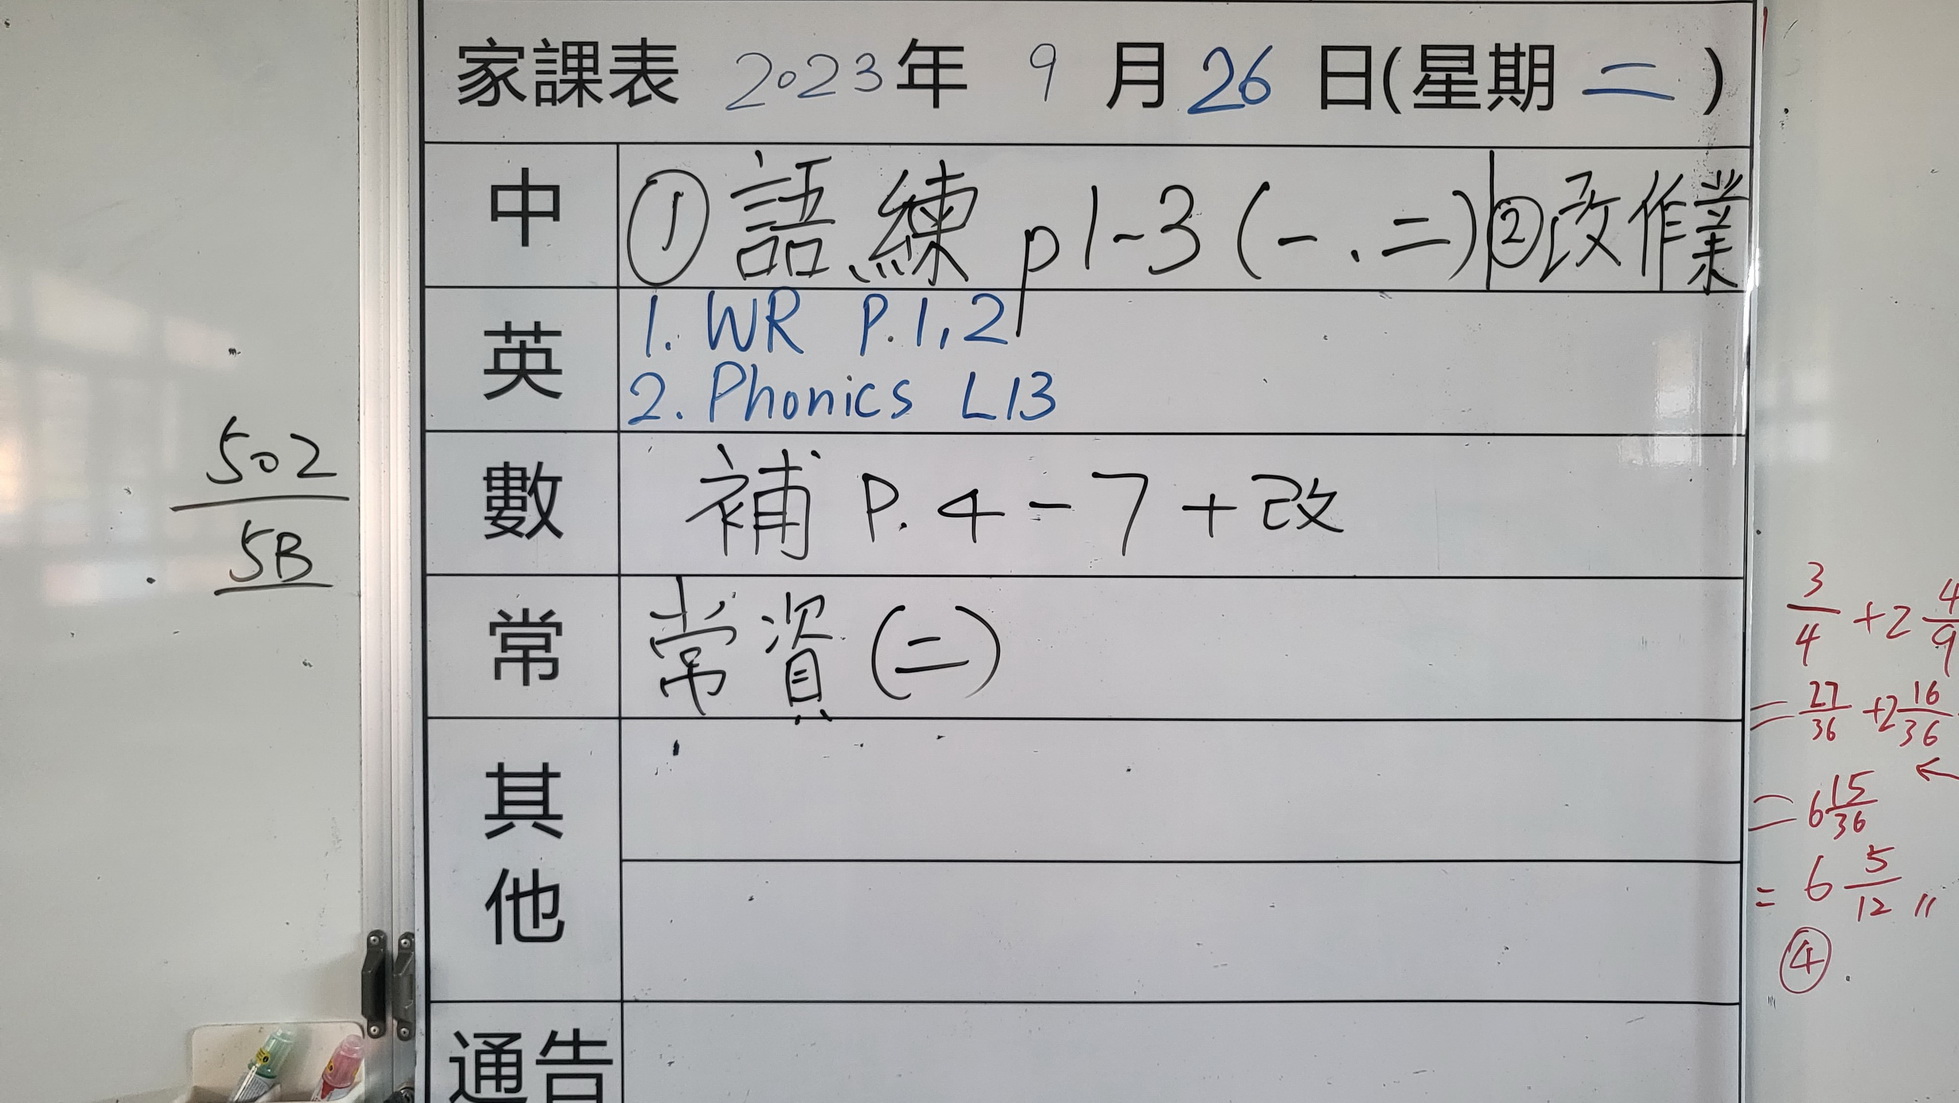 家課表 2023年 9 月 26 日(星期 二 )
中 ① 語練 p1-3 (一、二) ② 改作業
英 1. WR P.1,2
2. Phonics L13
數 補 P.4-7+改
常 常資(二)
其他
通告
502
5B
3/4 +2 4/9
= 27/36 +2 16/36
←
= 6 15/36
= 6 5/12 "
④